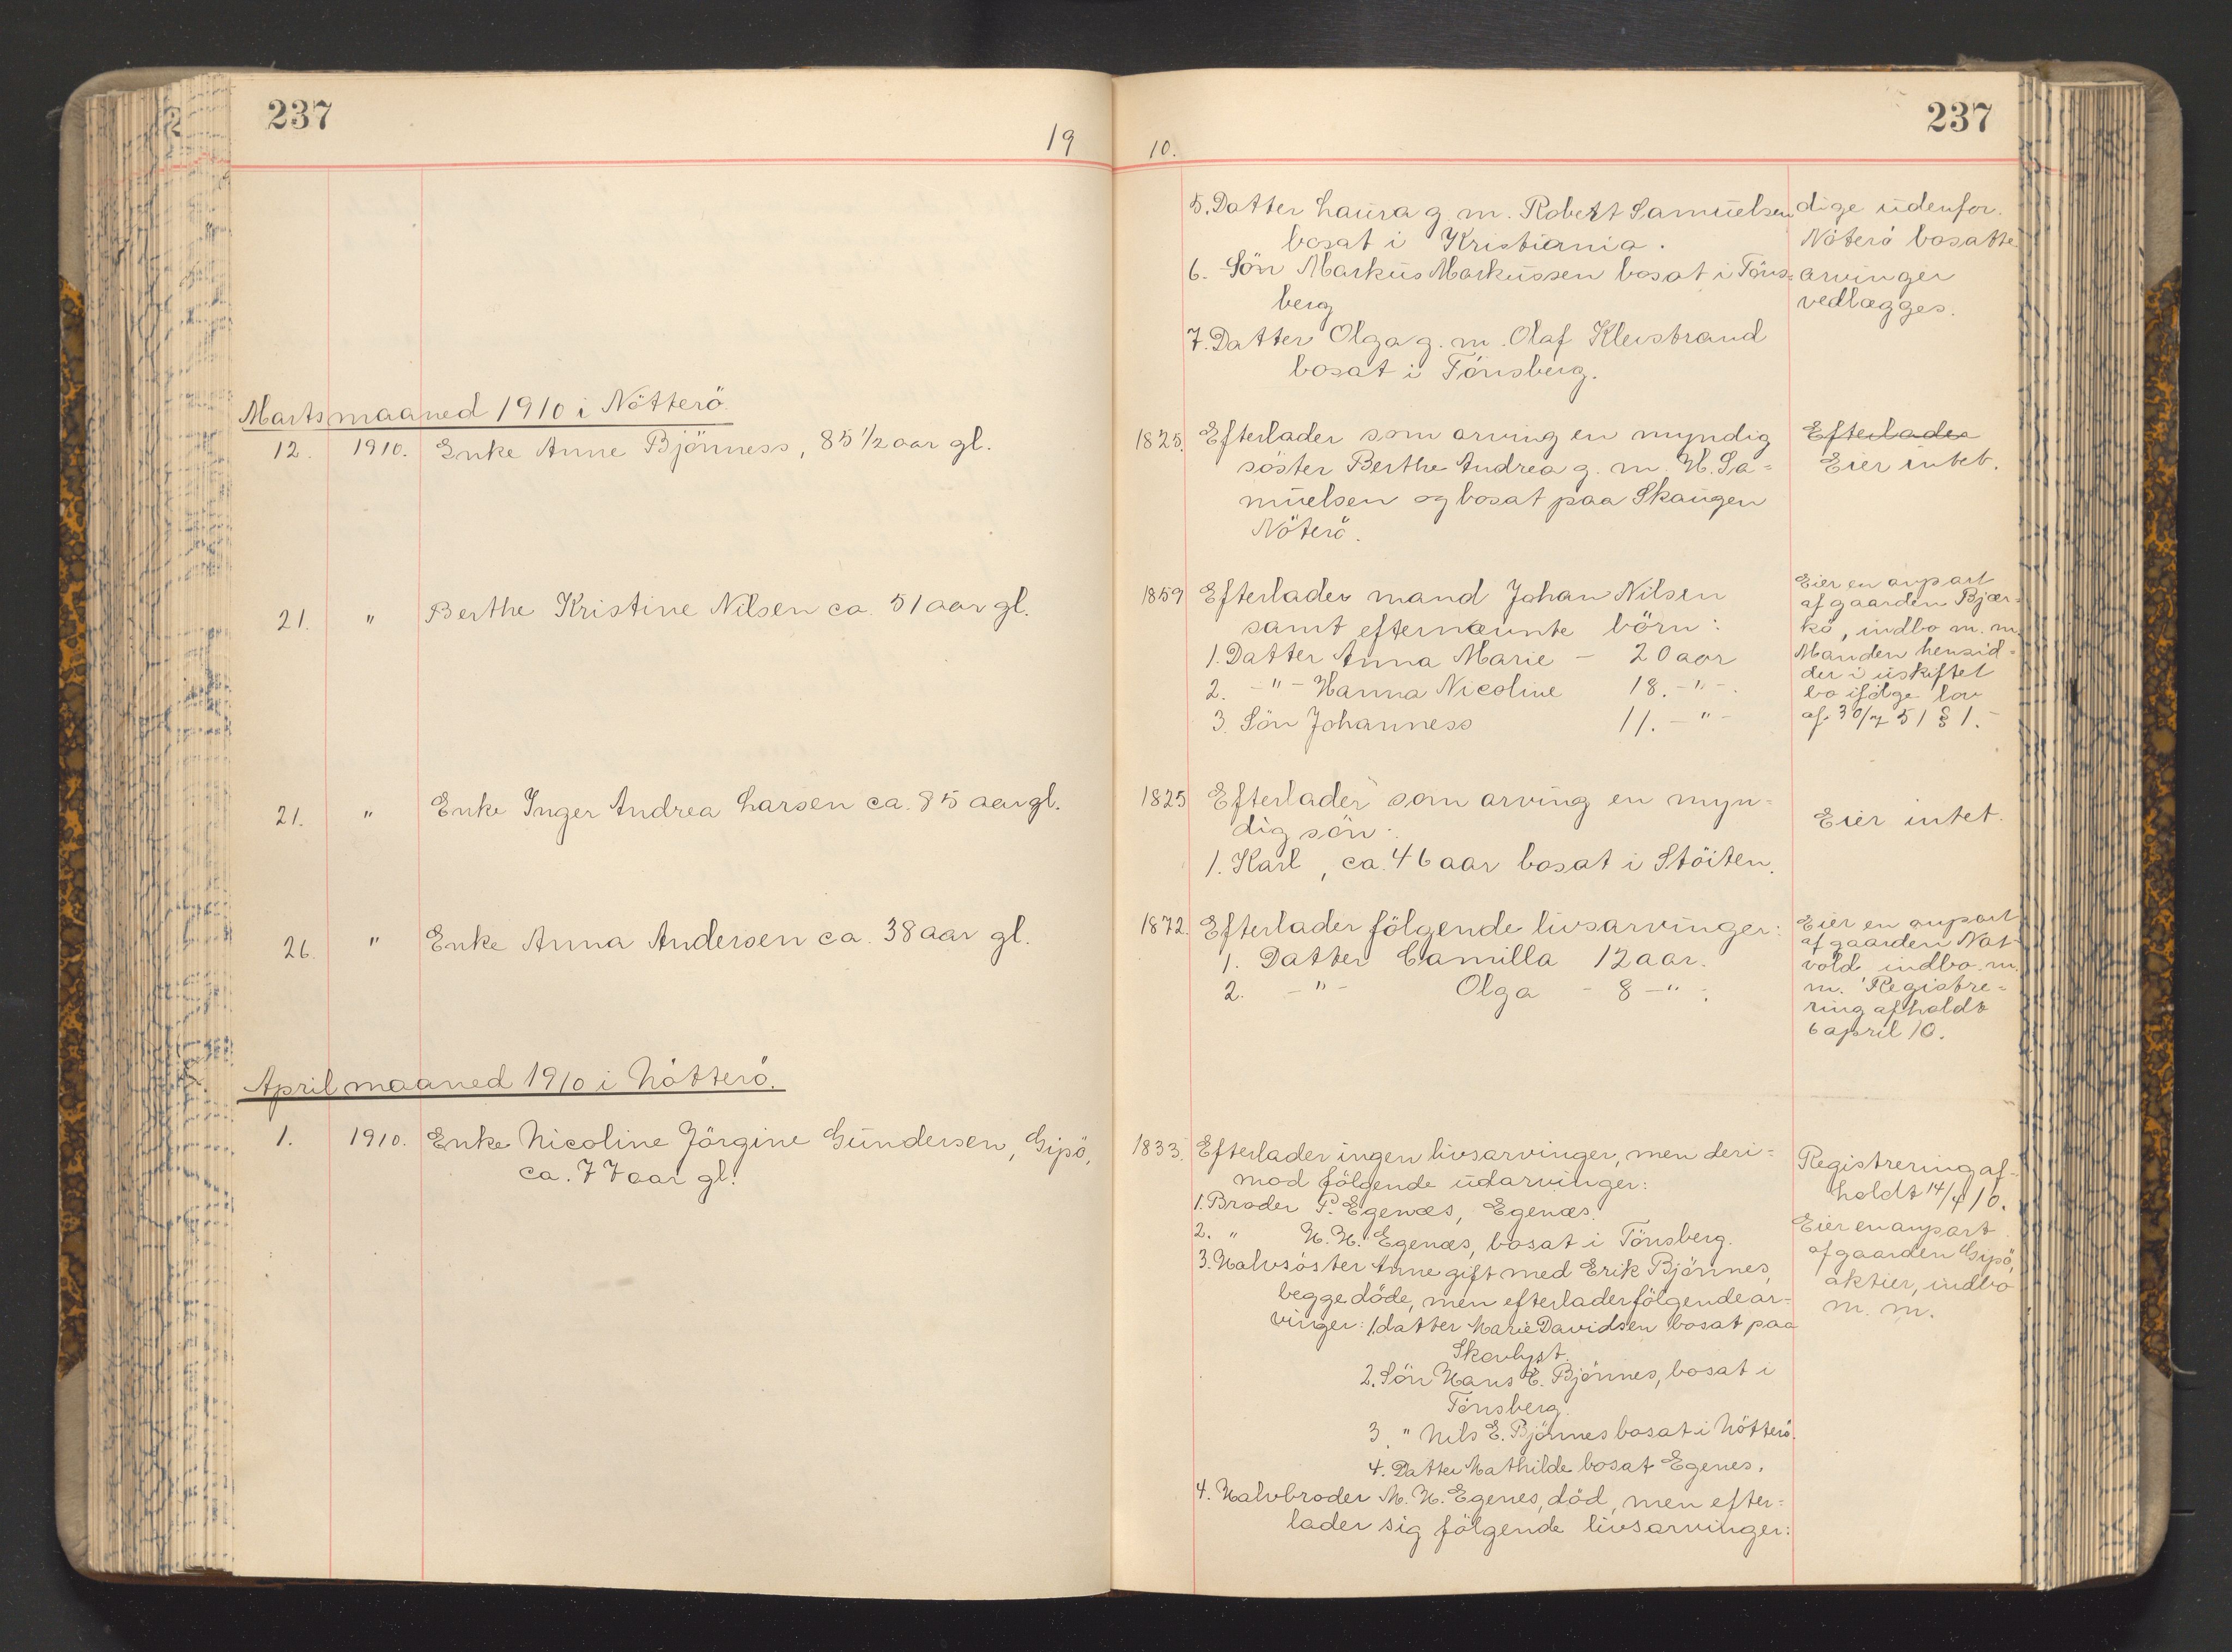 237
19
Martsmaaned 1910 i Nötterö.
12. 1910. Enke Anne Bjönness, 85 1/2 aar gl.
21. " Berthe Kristine Nilsen ca. 51 aar gl.
21. " Enke Inger Andrea Larsen ca. 85 aar gl.
26. " Enke Anna Andersen ca. 38 aar gl.
April maaned 1910 i Nötterö.
1. 1910. Enke Nicoline Jörgine Gundersen, Gipö,
ca. 77 aar gl.
237
10.
5. Datter Laura g. m. Robert Samuelsen
bosat i Kristiania.
6. Sön Markus Markussen bosat i Töns=
berg
7. Datter Olga g. m. Olaf Kleistrand
bosat i Tönsberg.
dige udenfor
Nöterö bosatte
arvinger
vedlægges.
1825. Efterlader som arving en myndig
söster Berthe Andrea g. m. H. Sa=
muelsen og bosat paa Skaugen
Nöterö.
Efterlader
Eier intet.
1859 Efterlader mand Johan Nilsen
samt efternævnte börn:
1. Datter Anna Marie - 20 aar
2. -"- Hanna Nicoline 18. -"-.
3. Sön Johanness 11. -"-
Eier en anpart
af gaarden Bjær=
kö, indbo m. m.
Manden hensid=
der i uskiftet
bo ifölge lov
af 30/7 51 § 1.-
1825 Efterlader som arving en myn=
dig sön:
1. Karl, ca. 46 aar bosat i Stöiten.
Eier intet.
1872. Efterlader fölgende livsarvinger:
1. Datter Camilla 12 aar.
2. -"- Olga - 8 -"-.
Eier en anpart
af gaarden Nat=
vold, indbo m.
m. Registre=
ring afholdt
6 april 10.
1833. Efterlader ingen livsarvinger, men deri=
mod fölgende udarvinger:
1. Broder P. Egenæs, Egenæs.
2. " H. H. Egenæs, bosat i Tönsberg.
3. Halvsöster Anne gift med Erik Bjönnes,
begge döde, men efterlader fölgende ar=
vinger: 1. datter Marie Davidsen bosat paa
Skovlyst.
2. Sön Hans E. Bjönnes, bosat i
Tönsberg.
3. " Nils E. Bjönnes bosat i Nötterö.
4. Datter Mathilde bosat Egenes.
4. Halvbroder M. H. Egenes, död, men efter=
lader sig fölgende livsarvinger:
Registrering af=
holdt 14/4 10.
Eier en anpart
af gaarden Gipö,
aktier, indbo
m. m.